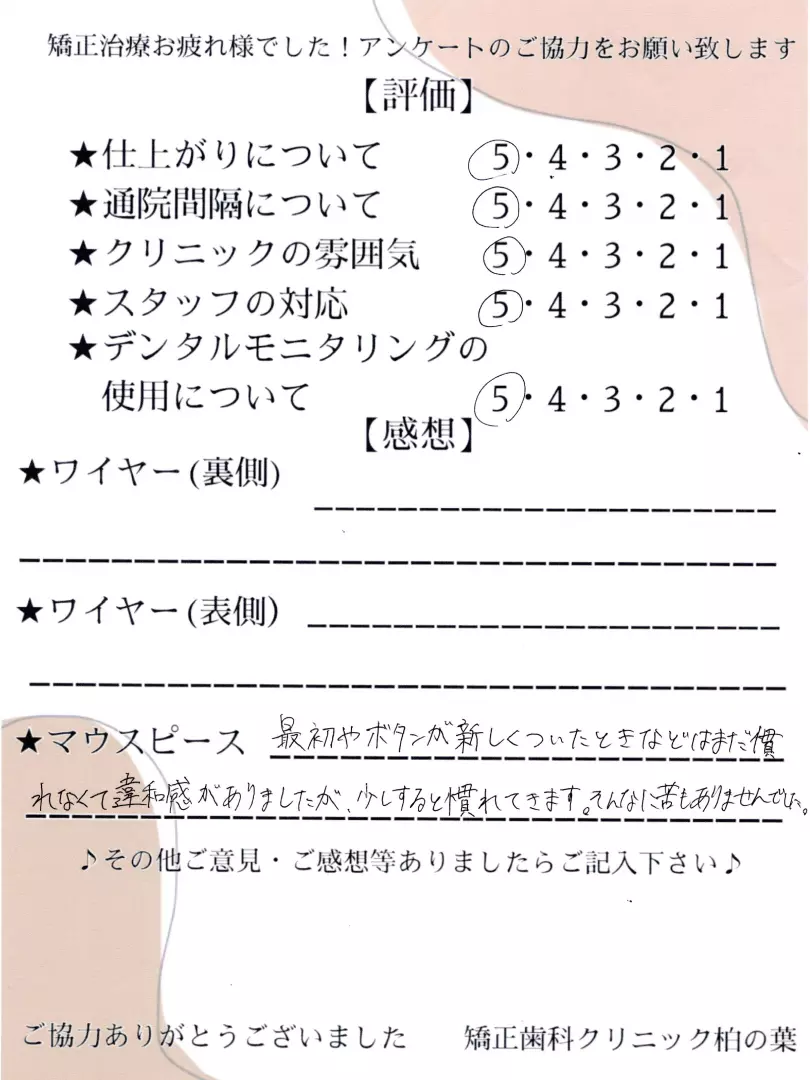 矯正治療お疲れ様でした！アンケートのご協力をお願い致します
【評価】
★仕上がりについて 5・4・3・2・1
★通院間隔について 5・4・3・2・1
★クリニックの雰囲気 5・4・3・2・1
★スタッフの対応 5・4・3・2・1
★デンタルモニタリングの
使用について 5・4・3・2・1
【感想】
★ワイヤー(裏側)
★ワイヤー(表側)
★マウスピース 最初やボタンが新しくついたときなどはまだ慣
れなくて違和感がありましたが、少しすると慣れてきます。そんなに苦もありませんでした。
♪その他ご意見・ご感想等ありましたらご記入下さい♪
ご協力ありがとうございました 矯正歯科クリニック柏の葉